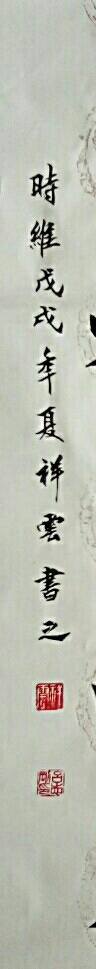 時維戊戌年夏祥雲書之
祥雲